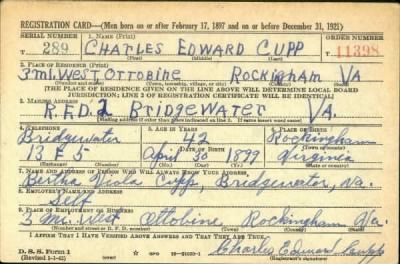 REGISTRATION CARD—(Men born on or after February 17, 1897 and on or before December 31, 1921)
SERIAL NUMBER 1. NAME (Print) ORDER NUMBER
T 289 CHARLES EDWARD CUPP T 11398
(First) (Middle) (Last)
2. PLACE OF RESIDENCE (Print)
3 mi. WEST OTTOBINE ROCKINGHAM VA
(Number and street) (Town, township, village, or city) (County) (State)
[THE PLACE OF RESIDENCE GIVEN ON THE LINE ABOVE WILL DETERMINE LOCAL BOARD
JURISDICTION; LINE 2 OF REGISTRATION CERTIFICATE WILL BE IDENTICAL]
3. MAILING ADDRESS
R.F.D. 2 BRIDGEWATER VA.
[Mailing address if other than place indicated on line 2. If same insert word same]
4. TELEPHONE 5. AGE IN YEARS 6. PLACE OF BIRTH
Bridgewater 42 Rockingham
DATE OF BIRTH
13 F 5 Apr. 30 1899 Virginia
7. NAME AND ADDRESS OF PERSON WHO WILL ALWAYS KNOW YOUR ADDRESS
Bertha Viola Cupp, Bridgewater, Va.
8. EMPLOYER'S NAME AND ADDRESS
Self
9. PLACE OF EMPLOYMENT OR BUSINESS
3 Mi. West Ottobine, Rockingham Va.
(Number and street or R. F. D. number) (Town) (County) (State)
I AFFIRM THAT I HAVE VERIFIED ABOVE ANSWERS AND THAT THEY ARE TRUE.
D. S. S. Form 1
(Revised 1-1-42) GPO Charles Edward Cupp
(Registrant's signature)